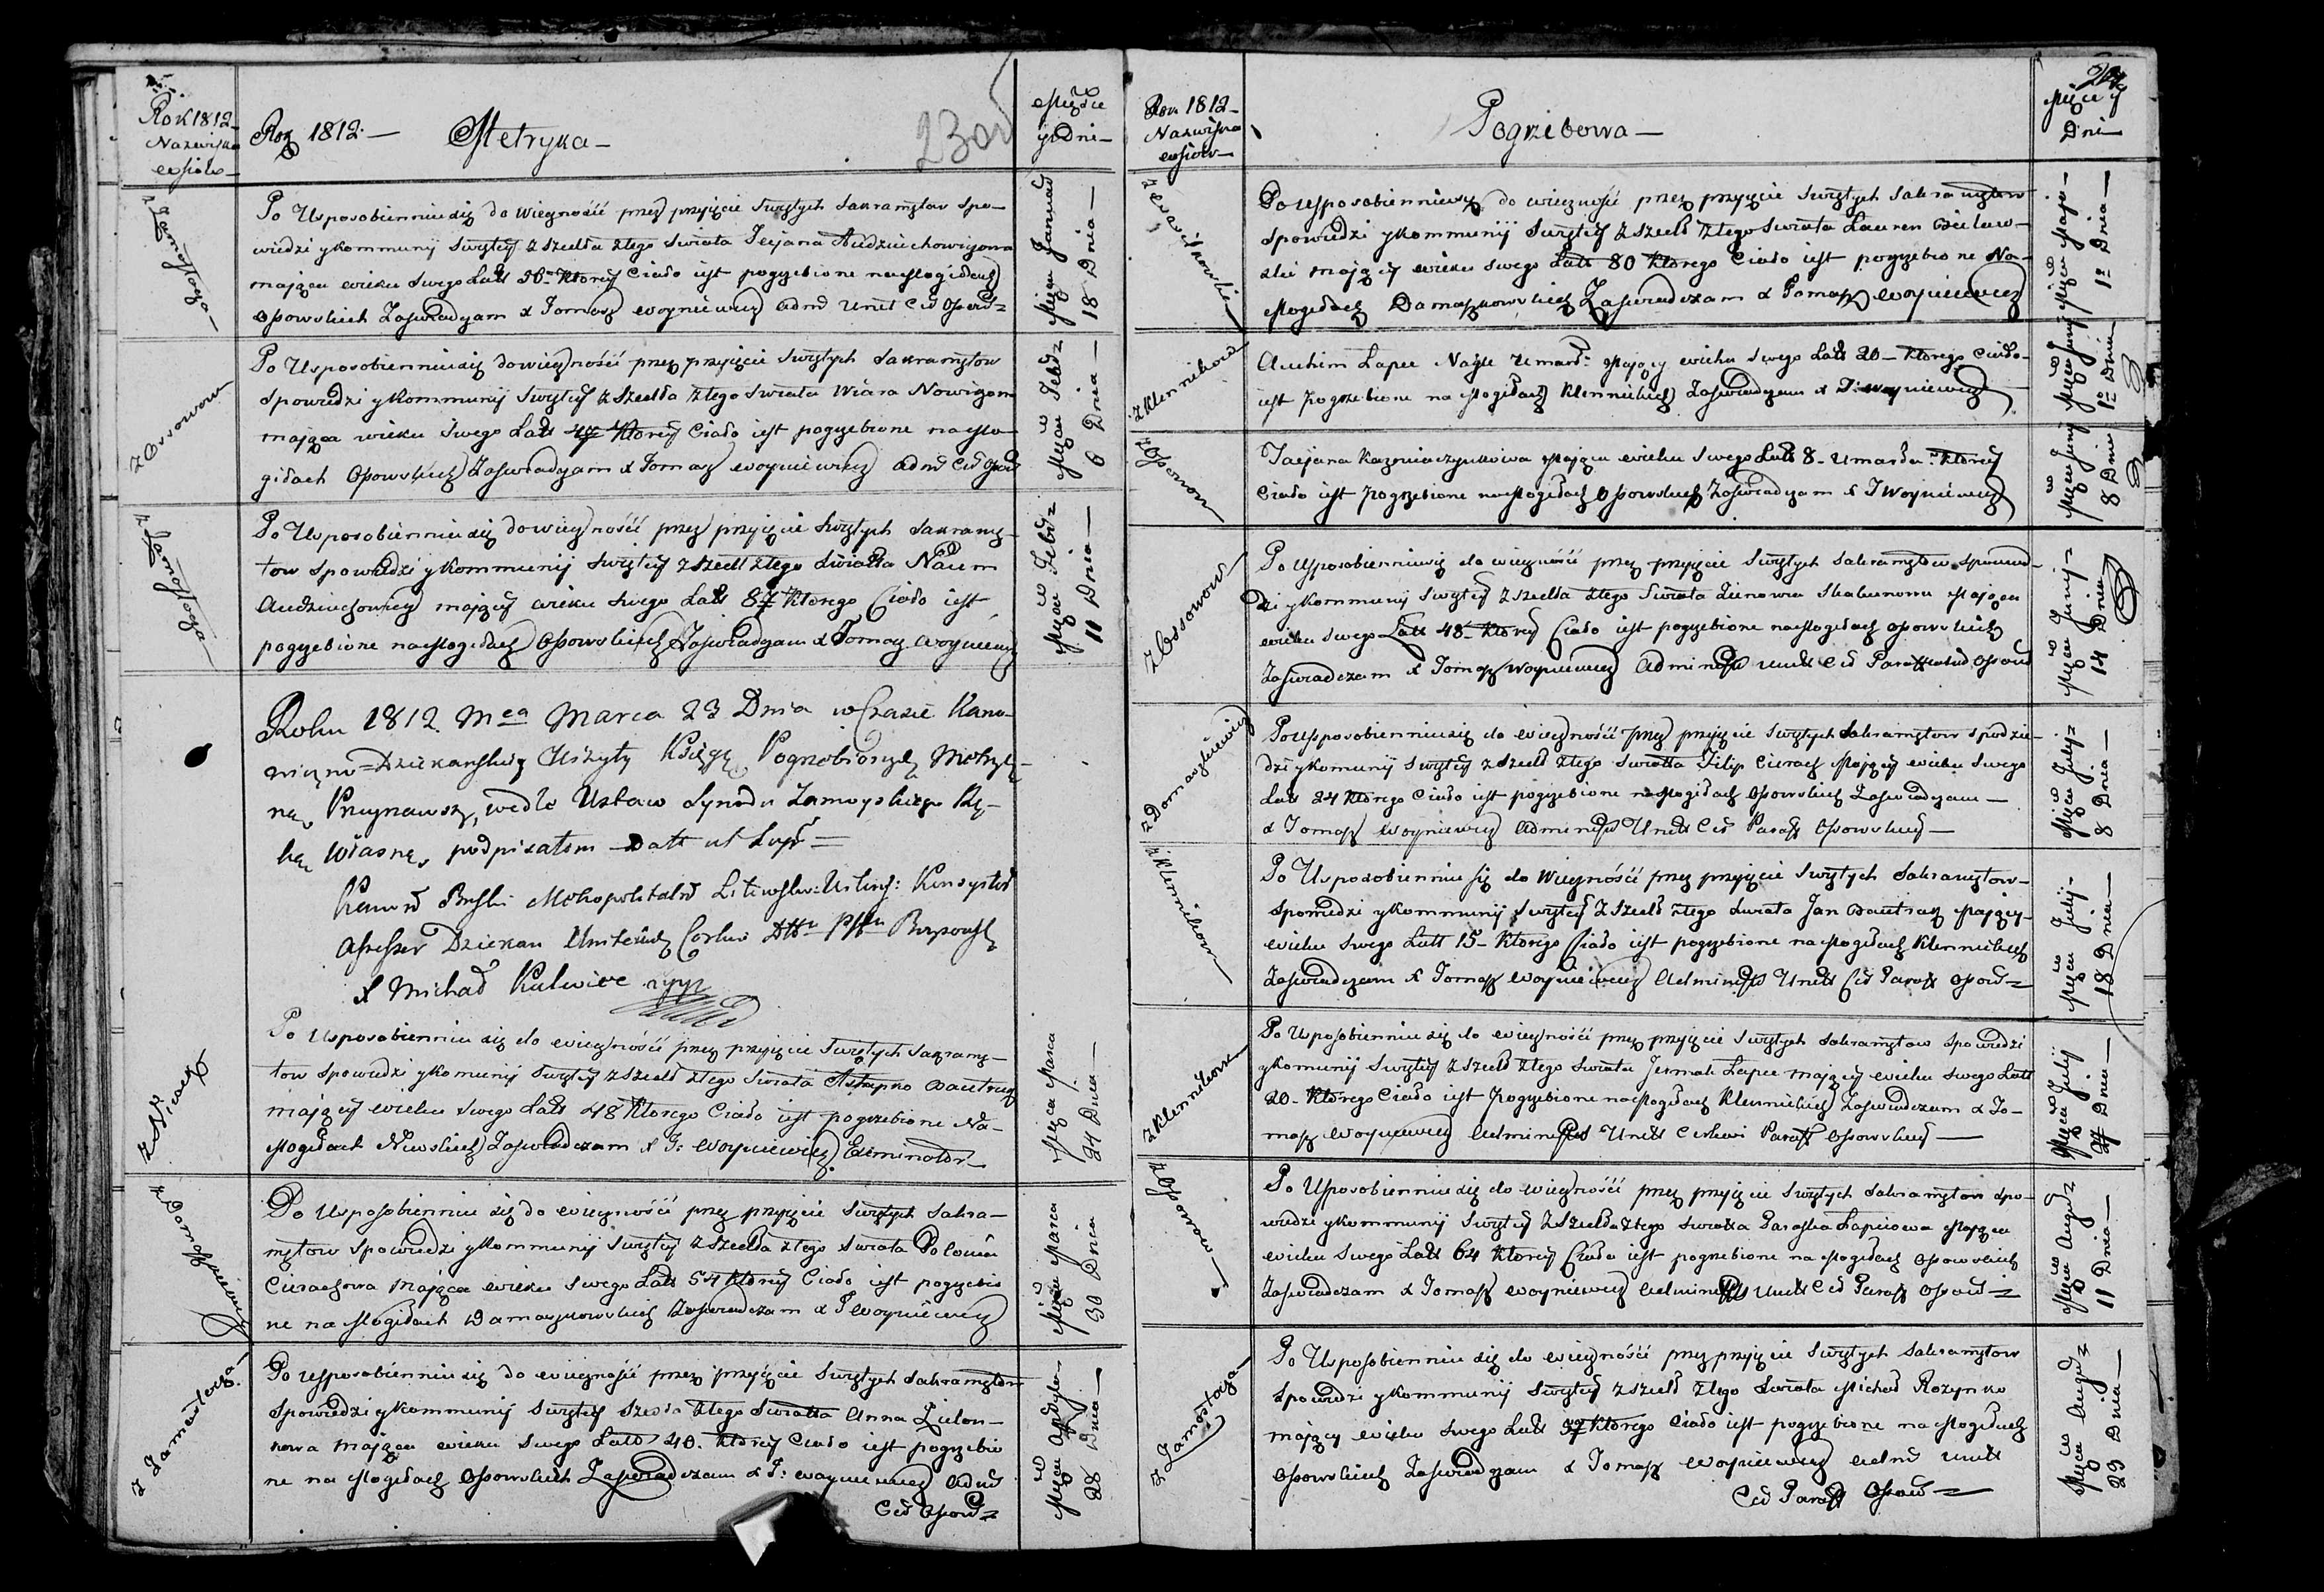 Rok 1812
Nazwiska
wsiów
Rok 1812. — Metryka —
230
Mięsce
y Dni —
z Zamostoza —
Po Usposobienniu się do wiecznośći przez przyięcie Swiętych Sakramętow Spo-
wiedzi y kommunij Swiętey z szedła z tego Swiata Tecjana Audziuchowiczowa
mająca wieku swego Latt 36 - Ktorey Ciało iest pogrzebione na Mogiłach
Ossowskich Zaswiadczam X Tomasz Woyniewicz
Mięca Januarij
18 Dnia —
z Ossowow
Po Usposobienniu się do wiecznośći przez przyięcie Swiętych Sakramętow
Spowiedzi y Kommunij Swiętey z szedła z tego Swiata Wiara Nowiczowa
mająca wieku swego Latt Ktorey Ciało iest pogrzebione na Mo-
giłach Ossowskich Zaswiadczam X Tomasz Woyniewicz
Mięca Febr
6 Dnia —
z Zamostoza —
Po Usposobienniu się do wiecznośći przez przyięcie Swiętych Sakramę-
tow Spowiedzi y Kommunij Swiętey z szedł z tego Swiatta Naum
Audziuchowicz mający wieku swego Latt 87 Ktorego Ciało iest
pogrzebione na Mogiłach Ossowskich Zaswiadczam X Tomasz Woyniewicz
Mięca Febr
11 Dnia —
Roku 1812 Mca Marca 23 Dnia w Czasie Kano-
niczno-Dziekanskiey Wizyty Księgę Pogrzebiowych Metryk
Przeyrzawszy, wedle Ustaw Synodu Zamoyskiego Rę-
ką Własną podpisałem Datt ut Supr =
Kanon Brzski Metropolitaln Litewski: Konsystor
Assessor Dziekan
X Michał Kulwiec mpp
Po Usposobienniu się do wiecznośći przez przyięcie Swiętych Sakramę-
tow Spowiedzi y Komunij Swiętey z szedł z tego Swiata Astapko Bautruk
mający wieku swego Latt 48 Ktorego Ciało iest pogrzebione Na-
Mogiłach Zaswiadczam X T: Woyniewicz
Mięca Marca
24 Dnia —
Po Usposobienniu się do wiecznośći przez przyięcie Swiętych Sakra-
mętow Spowiedzi y Kommunij Swiętey z szedła z tego Swiata Połonia
Cierachowa mająca wieku swego Latt 54 Ktorey Ciało iest pogrzebio
ne na Mogiłach Damaszkowskich Zaswiadczam X T Woyniewicz
Mięca Marca
30 Dnia
z Zamostoza —
Po Usposobienniu się do wiecznośći przez przyięcie Swiętych Sakramętow
Spowiedzi y kommunij Swiętey szedła z tego Swiatta Anna Zielon-
kowa mająca wieku swego Latt 40. Ktorey Ciało iest pogrzebio
ne na Mogiłach Ossowskich Zaswiadczam X T: Woyniewicz
28 Dnia —
Rok 1812 —
Nazwiska
wsiów —
Pogrzebowa —
Mięcy y
Dni
Po Usposobienniu się do wiecznośći przez przyięcie Swiętych Sakramętow
Spowiedzi y kommunij Swiętey z szedł z tego Swiata Lauren
mający wieku swego Latt 80 Ktorego Ciało iest pogrzebione Na-
Mogiłach Damaszkowskich Zaswiadczam X Tomasz Woyniewicz
Mięca Maja —
1o Dnia —
z Klennikow
Auchim Łapec Nagle umarł: Mający wieku swego Latt 20 - Ktorego Ciało
iest pogrzebione na Mogiłach Klennickich Zaswiadczam X T: Woyniewicz
Mięca Junij
1o Dnia
z Ossowow
Tacjana mająca wieku swego Latt 8 - umarła: Ktorey
Ciało iest pogrzebione na Mogiłach Ossowskich Zaswiadczam X T Woyniewicz
Mięca Junij
8 Dnia
z Ossowow
Po Usposobienniu się do wiecznośći przez przyięcie Swiętych Sakramętow Spowied-
dzi y kommunij Swiętey z szedła z tego Swiata Zienowia Skakunowa Mająca
wieku swego Latt 48 - Ktorey Ciało iest pogrzebione na Mogiłach Ossowskich
Zaswiadczam X Tomasz Woyniewicz
Mięca Junij =
14 Dnia
Po Usposobienniu się do wiecznośći przez przyięcie Swiętych Sakramętow Spowie-
dzi y komunij Swiętey z szedł z tego Swiatta Filip Cierach Mający wieku swego
Latt 24 Ktorego Ciało iest pogrzebione na Mogiłach Ossowskich Zaswiadczam —
X Tomasz Woyniewicz
Mięca Julij =
8 Dnia —
z Klennikow
Po Usposobienniu się do Wiecznośći przez przyięcie Swiętych Sakramętow —
Spowiedzi y kommunij Swiętey z szedł z tego Swiata Jan Bautruk Mający —
wieku swego Latt 15 - Ktorego Ciało iest pogrzebione na Mogiłach Klennickich
Zaswiadczam X Tomasz Woyniewicz
Mięca Julij —
18 Dnia —
z Klennikow
Po Usposobienniu się do wiecznośći przez przyięcie Swiętych Sakramętow Spowiedzi
y komunij Swiętey z szedł z tego Swiata Jermak Łapec mający wieku swego Latt
20 - Ktorego Ciało iest pogrzebione na Mogiłach Klennickich Zaswiadczam X To-
masz Woyniewicz
Mięca Julij
27 Dnia —
z Ossowow —
Po Usposobienniu się do wiecznośći przez przyięcie Swiętych Sakramętow Spo-
wiedzi y kommunij Swiętey z szedła z tego Swiatta Paraska Łapciowa Mająca
wieku Swego Latt 64 Ktorey Ciało iest pogrzebione na Mogiłach Ossowskich
Zaswiadczam X Tomasz Woyniewicz
Mięca August
11 Dnia —
z Zamostoza —
Po Usposobienniu się do wiecznośći przez przyięcie Swiętych Sakramętow
Spowiedzi y kommunij Swiętey z szedł z tego Swiata Michał Rozynko
mający wieku Swego Latt 37 Ktorego Ciało iest pogrzebione na Mogiłach
Ossowskich Zaswiadczam X Tomasz Woyniewicz
Mięca August
23 Dnia —